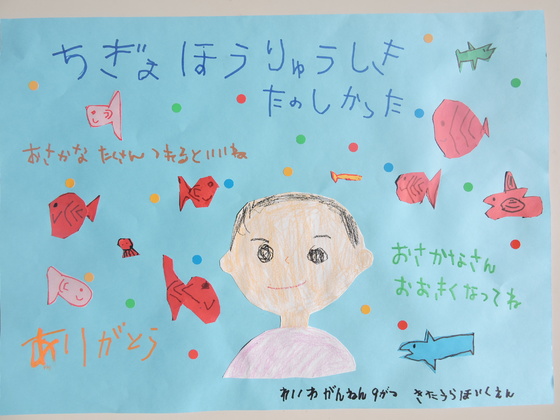 ちぎょ ほうりゅうしき
たのしかった
おさかな たくさん つれるといいね
おさかなさん
おおきくなってね
ありがとう
れいわがんねん9がつ きたうらほいくえん